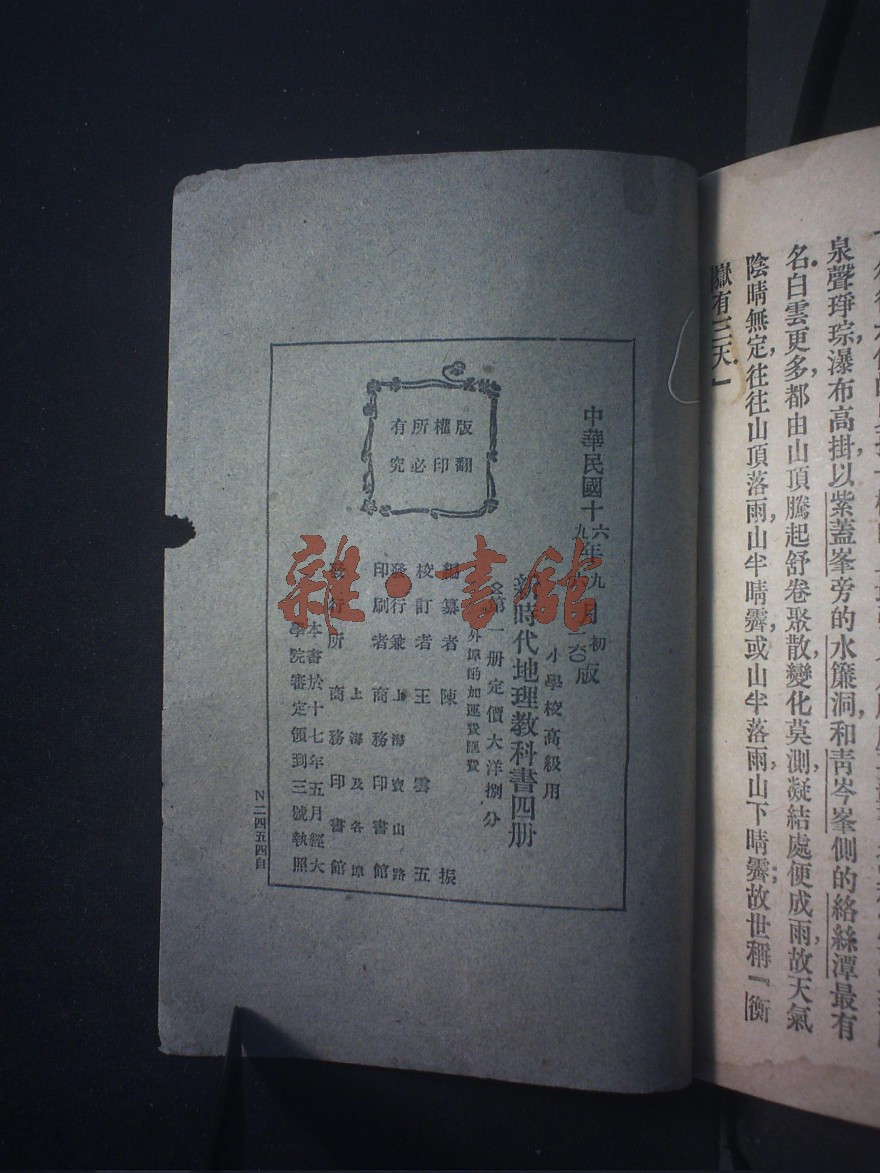 泉聲琤琮，瀑布高掛，以紫蓋峯旁的水簾洞，和青岑峯側的絡絲潭最有
名。白雲更多，都由山頂騰起，舒卷聚散，變化莫測，凝結處便成雨，故天氣
陰晴無定，往往山頂落雨，山半晴霽，或山半落雨，山下晴霽；故世稱『衡
嶽有三天。』
版權所有
翻印必究
中華民國十六年九月初版
小學校高級用
新時代地理教科書四册
第一册定價大洋捌分
外埠酌加運費匯費
編纂者 陳振
校訂者 王雲五
發行兼 上海寶山路
印刷者 商務印書館
上海及各埠
發行所 商務印書館
本書於十七年五月經大
學院審定領到三號執照
N二四五四自
雜·書館